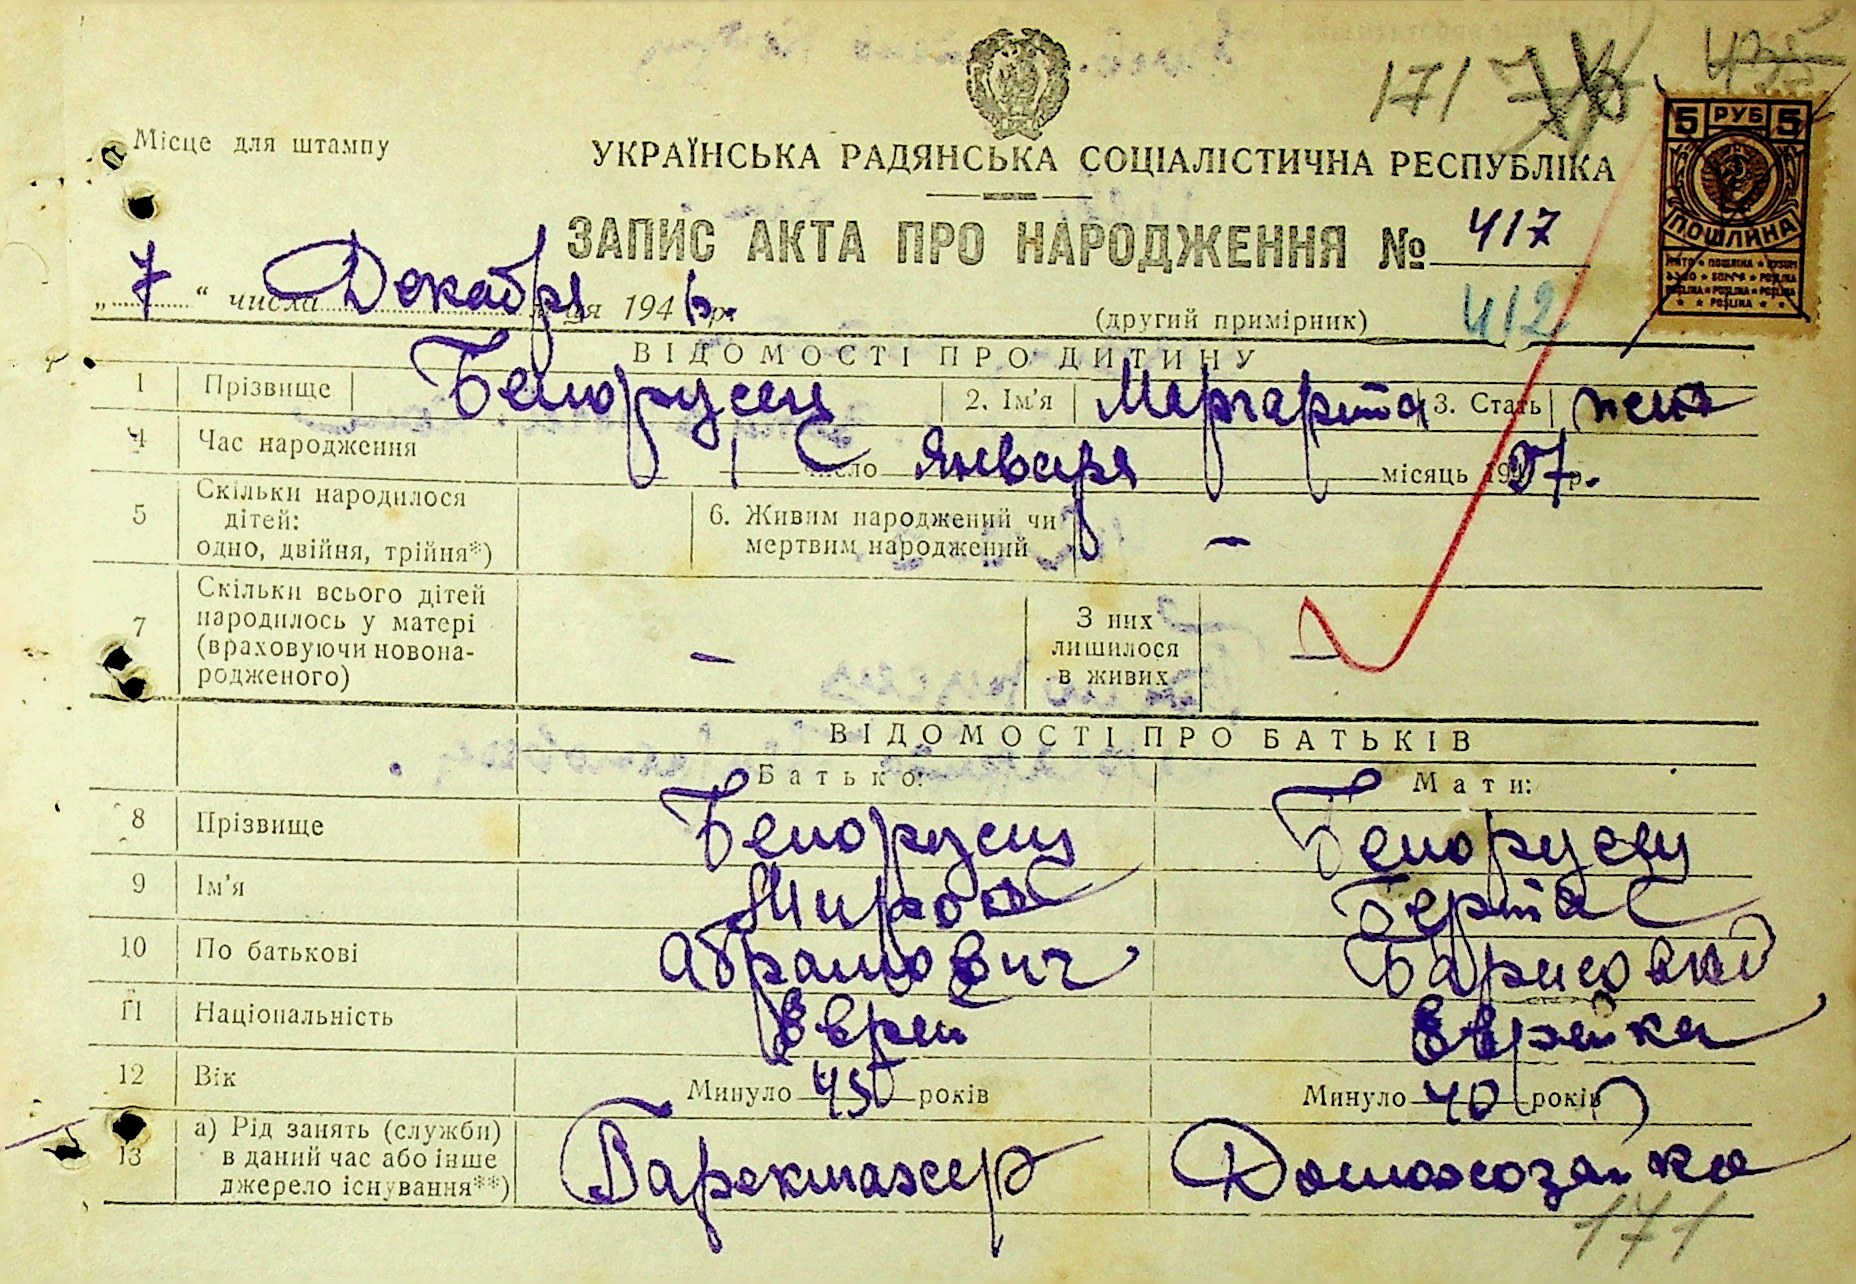 171
Місце для штампу
5 РУБ 5
ПОШЛИНА
УКРАЇНСЬКА РАДЯНСЬКА СОЦІАЛІСТИЧНА РЕСПУБЛІКА
ЗАПИС АКТА ПРО НАРОДЖЕННЯ № 417
„ 7 “ числа Декабря місяця 1946 р.
(другий примірник) 412
ВІДОМОСТІ ПРО ДИТИНУ
1 Прізвище Белорусец 2. Ім'я Маргарита 3. Стать жен
4 Час народження 1 число января місяць 1937 р.
5 Скільки народилося дітей: одно, двійня, трійня*) 6. Живим народжений чи мертвим народжений —
7 Скільки всього дітей народилось у матері (враховуючи новонародженого) — З них лишилося в живих —
ВІДОМОСТІ ПРО БАТЬКІВ
Батько: Мати:
8 Прізвище Белорусец Белорусец
9 Ім'я Мирон Берта
10 По батькові Абрамович Барисовна
11 Національність Еврей Еврейка
12 Вік Минуло 45 років Минуло 40 років
13 а) Рід занять (служби) в даний час або інше джерело існування**) Парекмахер Домохозайка
171